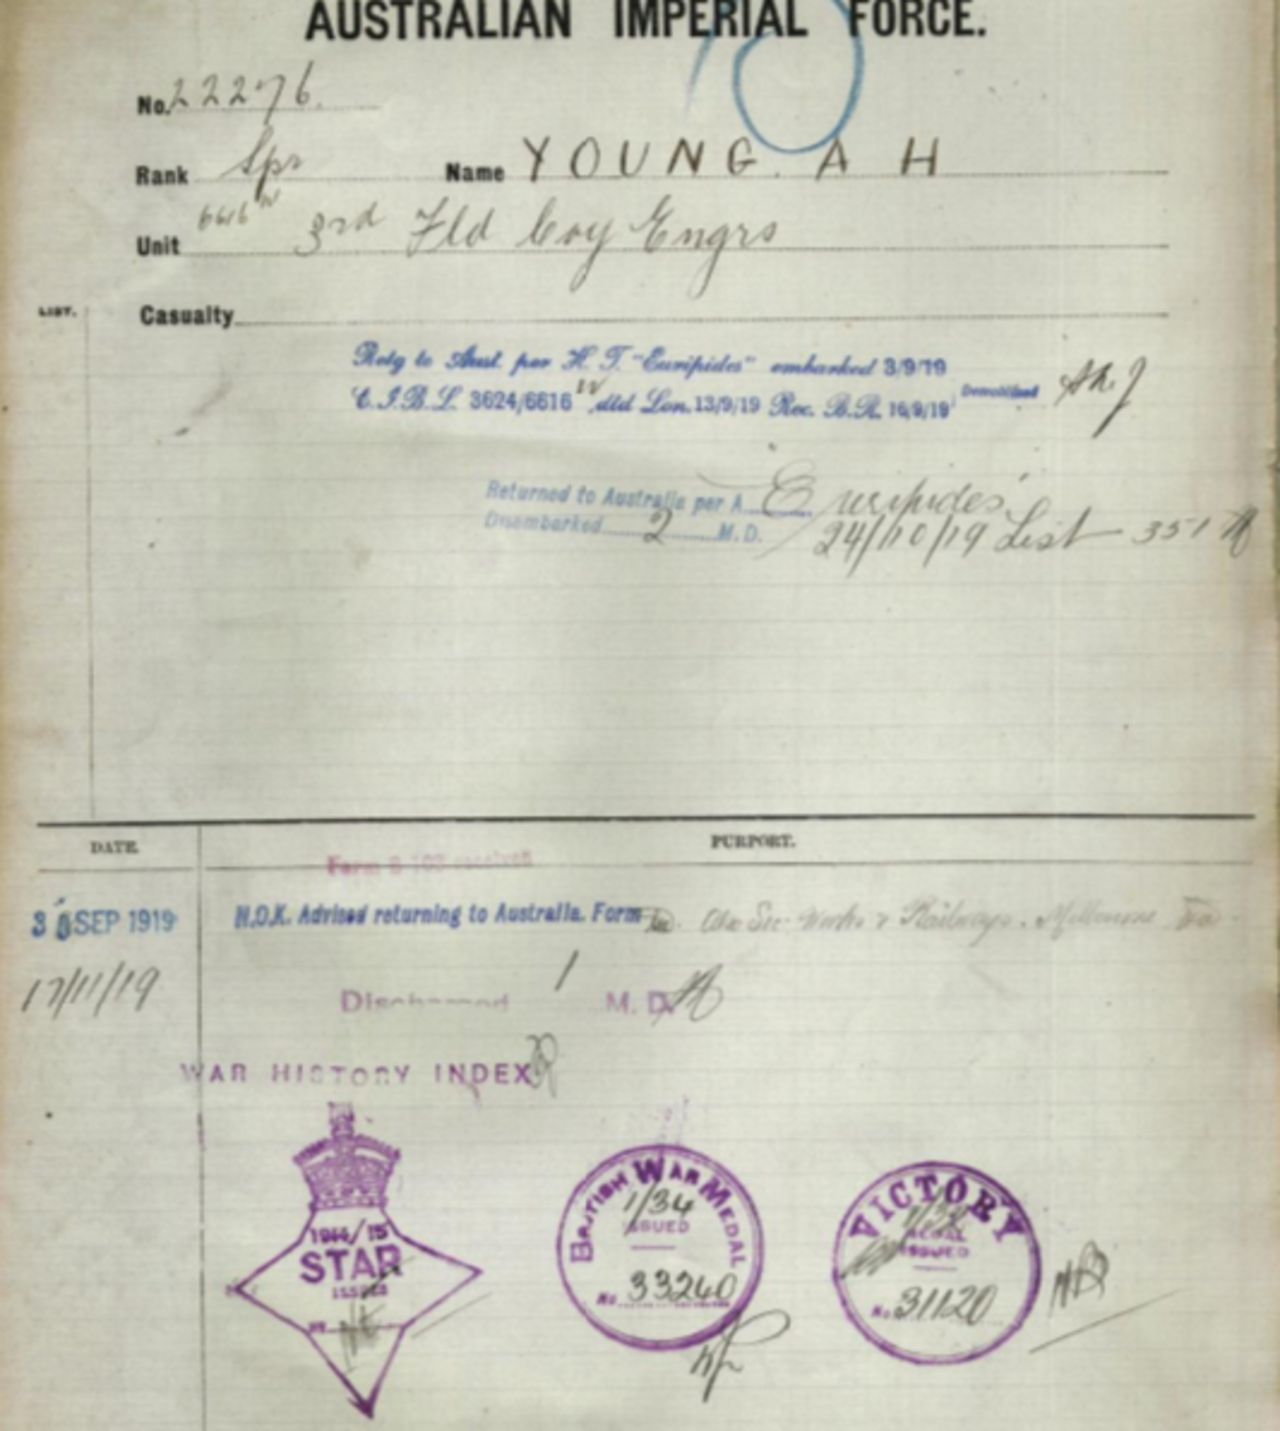 AUSTRALIAN IMPERIAL FORCE.
No. 22276.
Rank Spr Name YOUNG. A H
6616 W
Unit 3rd Fld Coy Engrs
LIST.
Casualty
Retg to Aust. per H. T. "Euripides" embarked 3/9/19
C.I.B.L. 3624/6616 W dtd Lon. 13/9/19 Rec. B.R. 16/9/19 Demobilised
Returned to Australia per A Euripides
Disembarked 2 M.D. 24/10/19 List 351
DATE. PURPORT.
Form B 103 received
30 SEP 1919 N.O.K. Advised returning to Australia. Form Sec. Works & Railways. Melbourne
17/11/19 Discharged 1 M. D.
WAR HISTORY INDEX
1914/15
STAR
ISSUED
No
BRITISH WAR MEDAL
1/34
ISSUED
No 33260
VICTORY
MEDAL
ISSUED
No. 31120